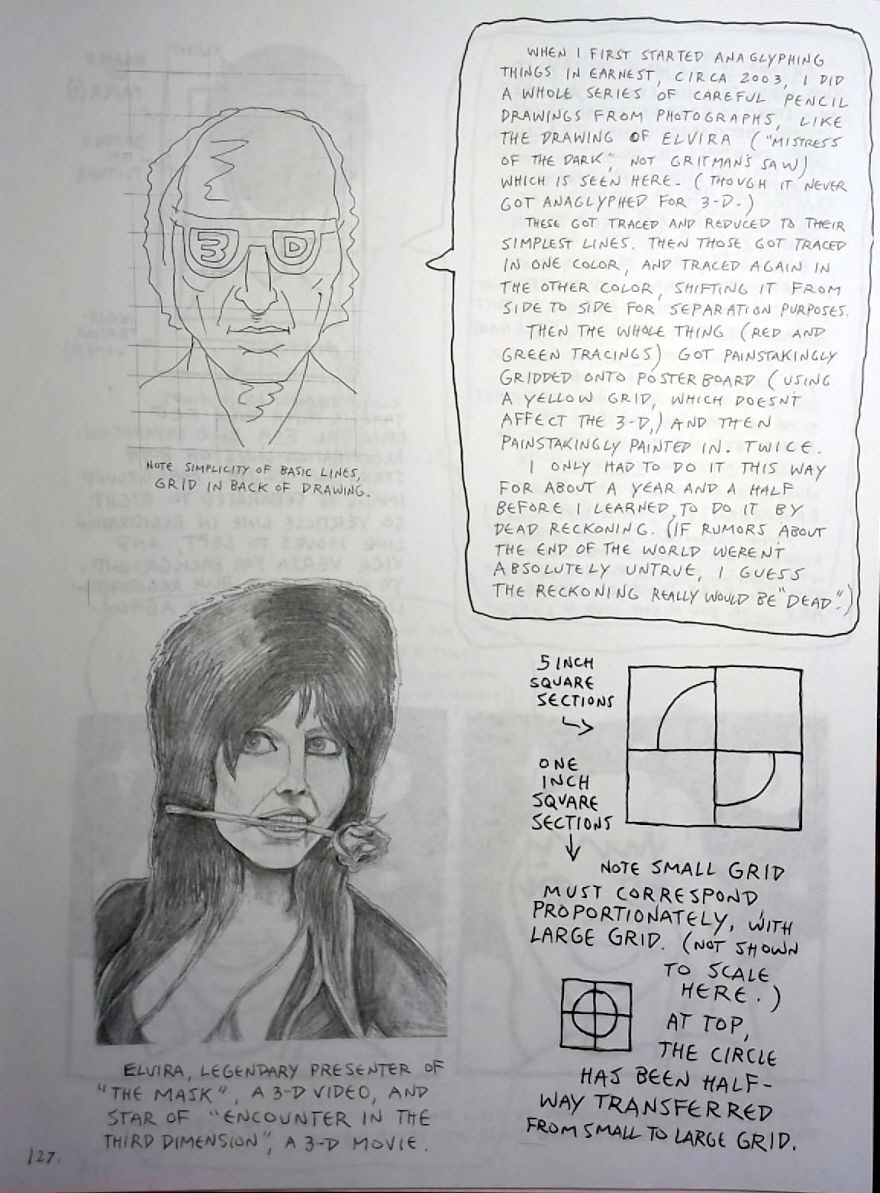 WHEN I FIRST STARTED ANAGLYPHING
THINGS IN EARNEST, CIRCA 2003, I DID
A WHOLE SERIES OF CAREFUL PENCIL
DRAWINGS FROM PHOTOGRAPHS, LIKE
THE DRAWING OF ELVIRA ("MISTRESS
OF THE DARK", NOT GRITMAN'S SAW)
WHICH IS SEEN HERE. (THOUGH IT NEVER
GOT ANAGLYPHED FOR 3-D.)
THESE GOT TRACED AND REDUCED TO THEIR
SIMPLEST LINES. THEN THOSE GOT TRACED
IN ONE COLOR, AND TRACED AGAIN IN
THE OTHER COLOR, SHIFTING IT FROM
SIDE TO SIDE FOR SEPARATION PURPOSES.
THEN THE WHOLE THING (RED AND
GREEN TRACINGS) GOT PAINSTAKINGLY
GRIDDED ONTO POSTERBOARD (USING
A YELLOW GRID, WHICH DOESN'T
AFFECT THE 3-D,) AND THEN
PAINSTAKINGLY PAINTED IN. TWICE.
I ONLY HAD TO DO IT THIS WAY
FOR ABOUT A YEAR AND A HALF
BEFORE I LEARNED TO DO IT BY
DEAD RECKONING. (IF RUMORS ABOUT
THE END OF THE WORLD WEREN'T
ABSOLUTELY UNTRUE, I GUESS
THE RECKONING REALLY WOULD BE "DEAD".)
3 D
NOTE SIMPLICITY OF BASIC LINES,
GRID IN BACK OF DRAWING.
5 INCH
SQUARE
SECTIONS
ONE
INCH
SQUARE
SECTIONS
NOTE SMALL GRID
MUST CORRESPOND
PROPORTIONATELY, WITH
LARGE GRID. (NOT SHOWN
TO SCALE
HERE.)
AT TOP,
THE CIRCLE
HAS BEEN HALF-
WAY TRANSFERRED
FROM SMALL TO LARGE GRID.
ELVIRA, LEGENDARY PRESENTER OF
"THE MASK", A 3-D VIDEO, AND
STAR OF "ENCOUNTER IN THE
THIRD DIMENSION", A 3-D MOVIE.
127.